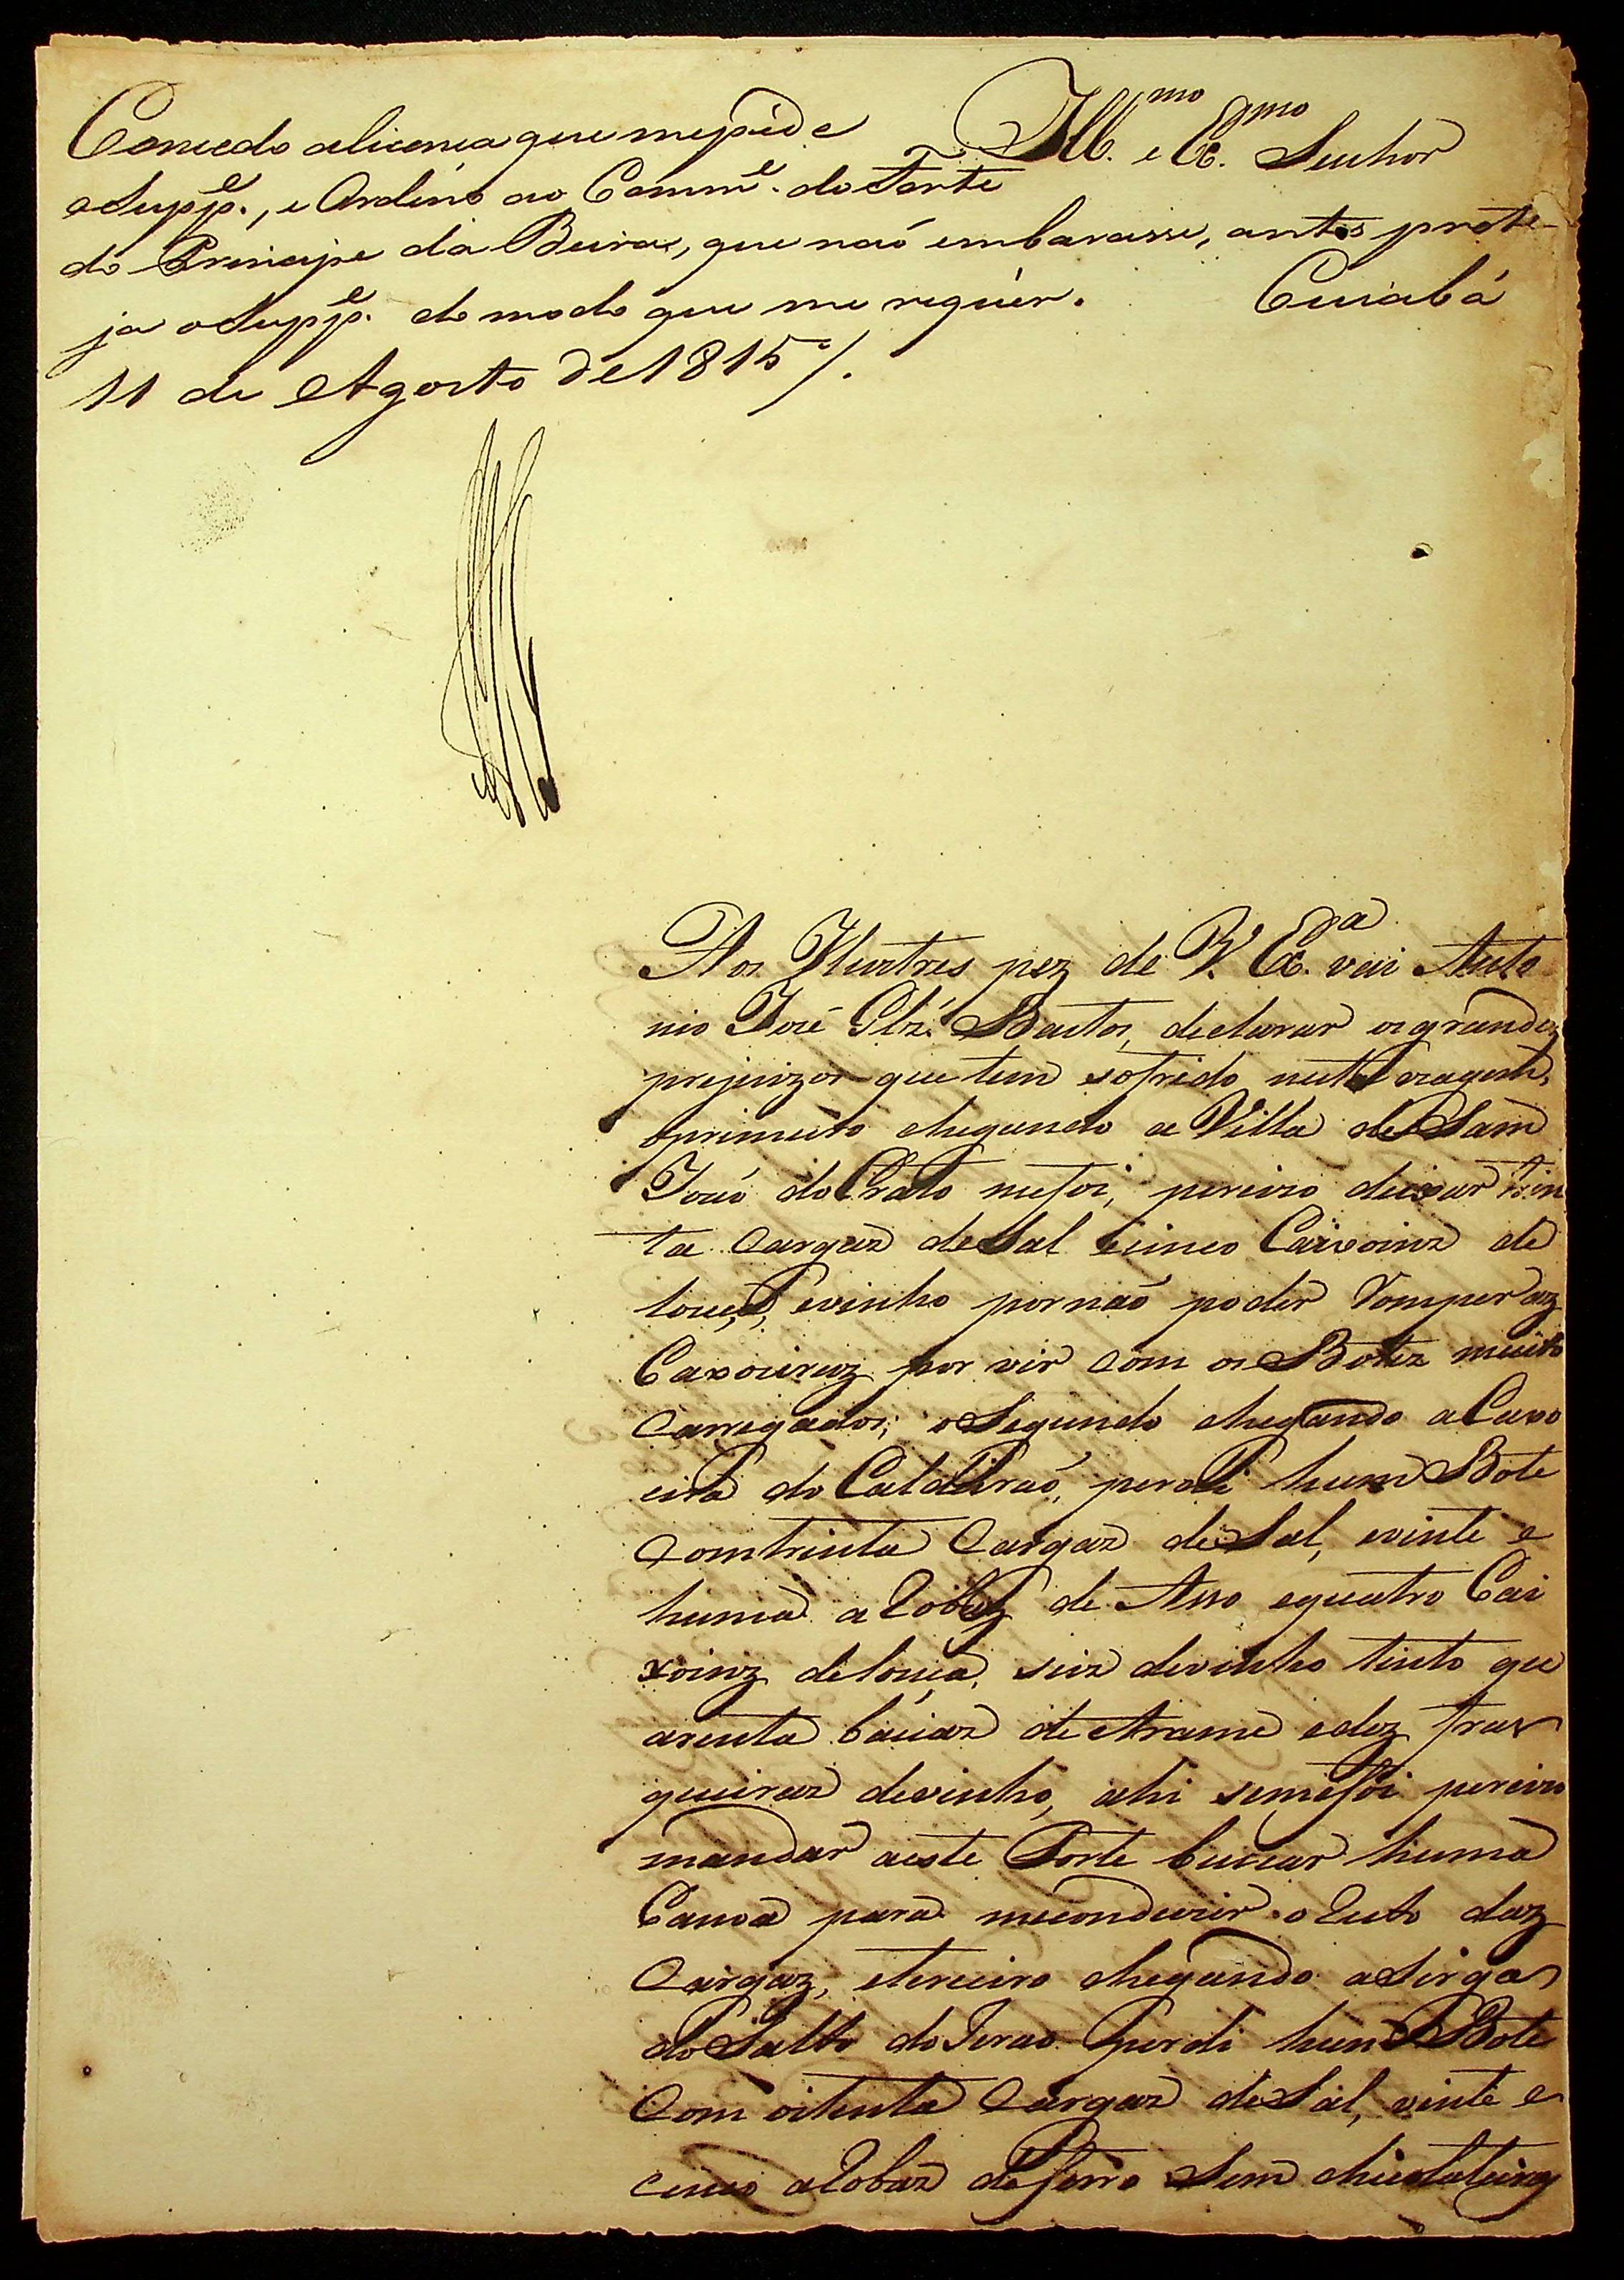 Ill.mo e Ex.mo Senhor
Concedo a licença que me pede
o Supp.e, e Ordeno ao Comm.e do Forte
do Principe da Beira, que naó embarasse, antes prote-
ja o Supp.e do modo que me requér. Cuiabá
11 de Agosto de 1815 /.
Aos Illustres pez de V. Ex.a vai Anto
nio José Glz.' Bastos, declarar os grandez
prejuizos que tem sofrido nesta viagem,
o primeiro chegando a Villa de Sam
Joaó do Crato mefoi, perciso deixar trin
ta Cargaz de Sal ecinco Caixoinz de
louça, evinho por naó poder Romper az
Caxoeiraz por vir Com os Botez muito
Carregados; o Segundo chegando a Caxo
eira do Caldeiraó, perdi hum Bote
Com trinta Cargaz de Sal, evinte e
huma aRobaz de Asso equatro Cai
xoinz delouça, seiz devinho tinto qu
arenta baciaz de Arame edez fras
queiraz devinho, ahi semefoi perciso
mandar aeste Forte buscar huma
Canoa para meconduzir o Resto daz
Cargaz, eterceiro chegando a Sirga
do Salto do Jirao perdi hum Bote
Com oitenta Cargaz de Sal, vinte e
cinco aRobaz de ferro Sem chicolateiraz